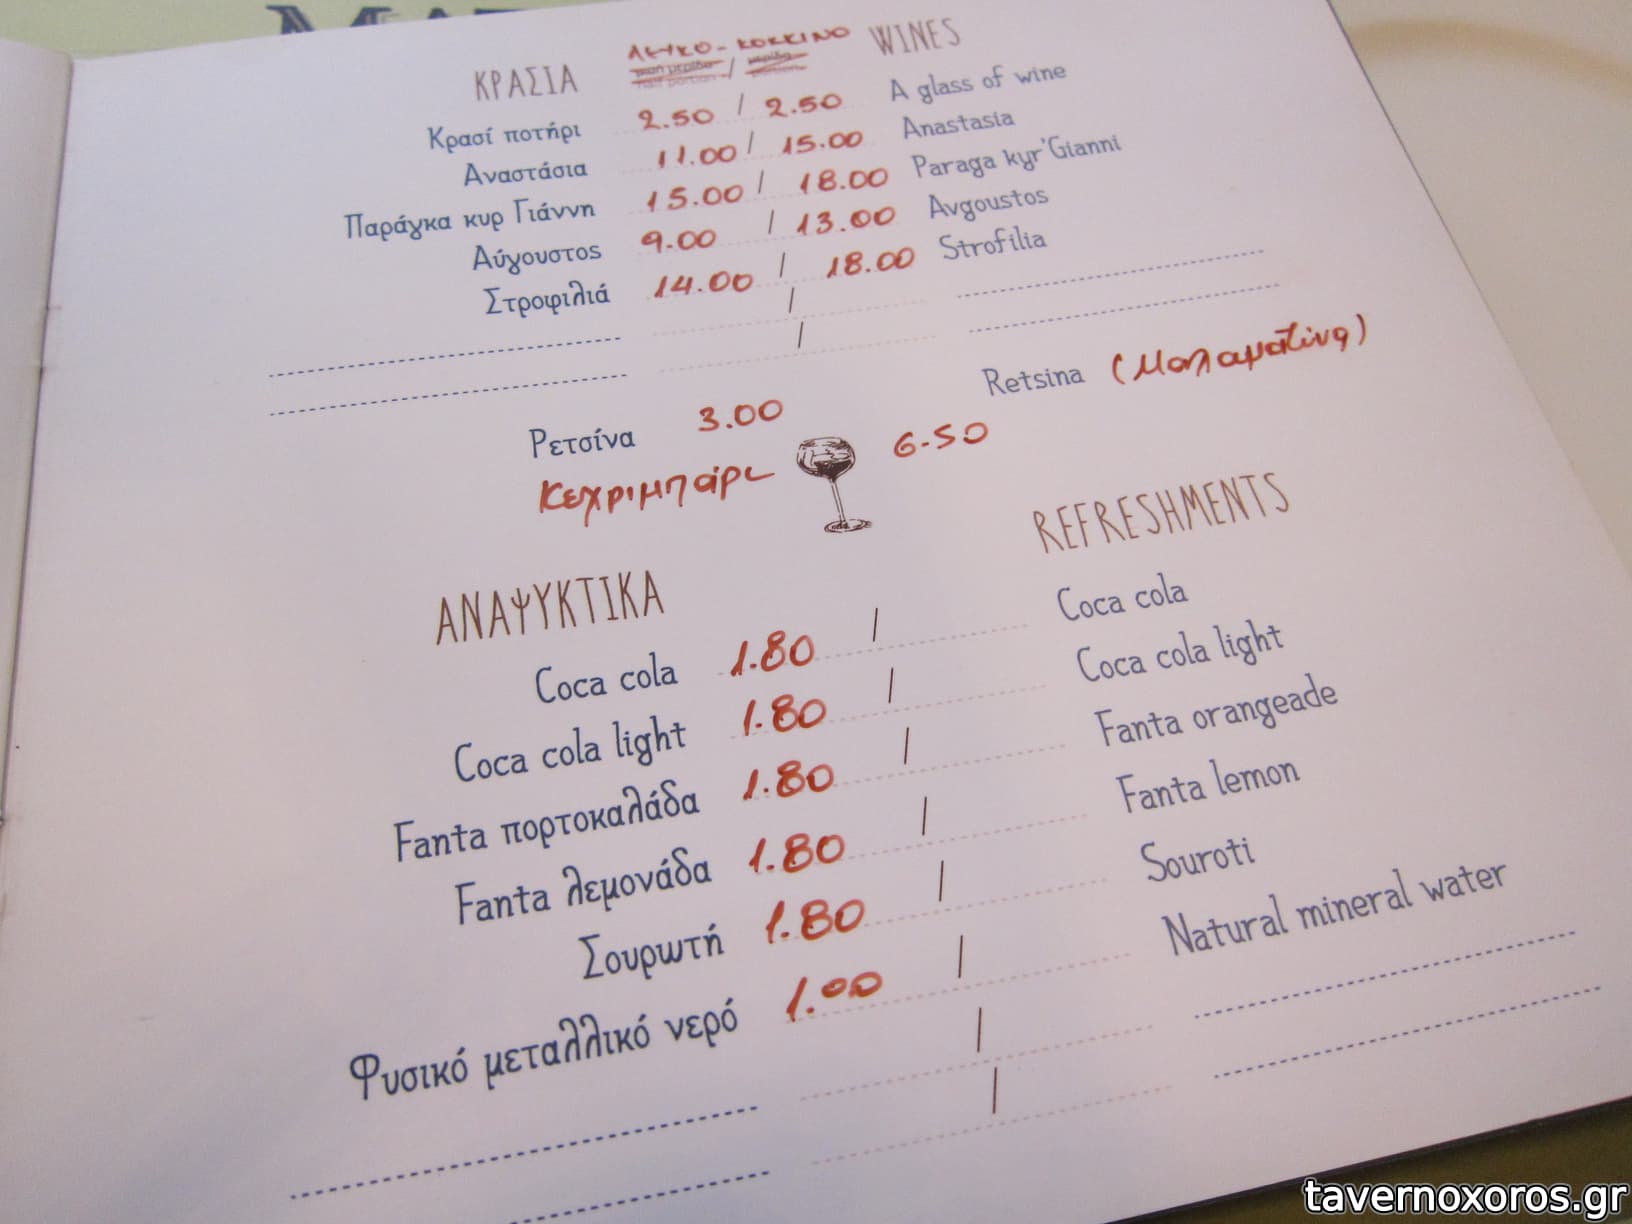 ΚΡΑΣΙΑ ΛΕΥΚΟ - ΚΟΚΚΙΝΟ WINES
μισή μερίδα / μερίδα
half portion / portion
Κρασί ποτήρι 2.50 / 2.50 A glass of wine
Αναστάσια 11.00 / 15.00 Anastasia
Παράγκα κυρ Γιάννη 15.00 / 18.00 Paraga kyr'Gianni
Αύγουστος 9.00 / 13.00 Avgoustos
Στροφιλιά 14.00 / 18.00 Strofilia
/
/
Ρετσίνα 3.00 Retsina (Μαλαματίνα)
Κεχριμπάρι 6.50
ΑΝΑΨΥΚΤΙΚΑ REFRESHMENTS
Coca cola 1.80 / Coca cola
Coca cola light 1.80 / Coca cola light
Fanta πορτοκαλάδα 1.80 / Fanta orangeade
Fanta λεμονάδα 1.80 / Fanta lemon
Σουρωτή 1.80 / Souroti
Φυσικό μεταλλικό νερό 1.00 / Natural mineral water
/
/
tavernoxoros.gr